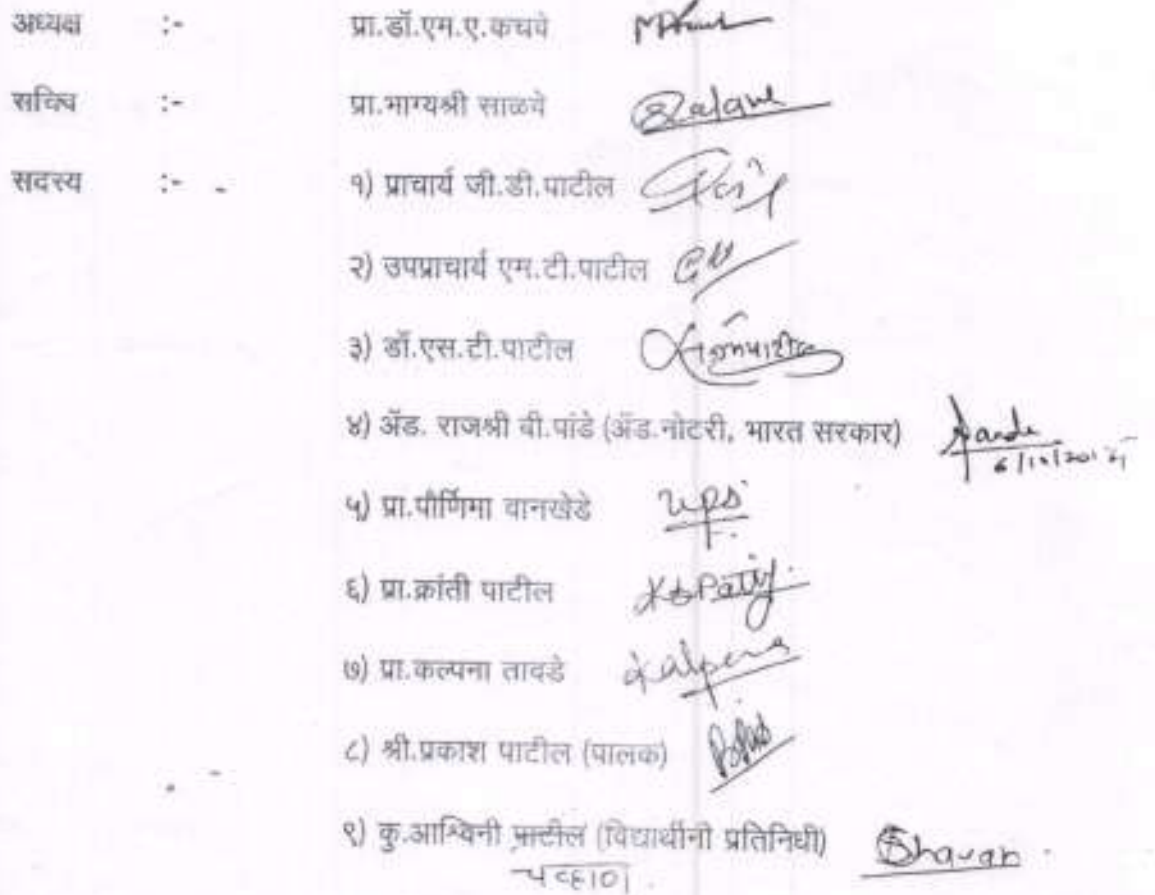 अध्यक्ष :- प्रा.डॉ.एम.ए.कचवे
सचिव :- प्रा.भाग्यश्री साळवे Salave
सदस्य :- १) प्राचार्य जी.डी.पाटील
२) उपप्राचार्य एम.टी.पाटील
३) डॉ.एस.टी.पाटील
४) ॲड. राजश्री बी.पांडे (ॲड.नोटरी, भारत सरकार) Pande
५) प्रा.पौर्णिमा वानखेडे
६) प्रा.क्रांती पाटील KSPatil
७) प्रा.कल्पना तावडे Kalpana
८) श्री.प्रकाश पाटील (पालक)
९) कु.आश्विनी पाटील (विद्यार्थीनी प्रतिनिधी) Chavan
चव्हाण